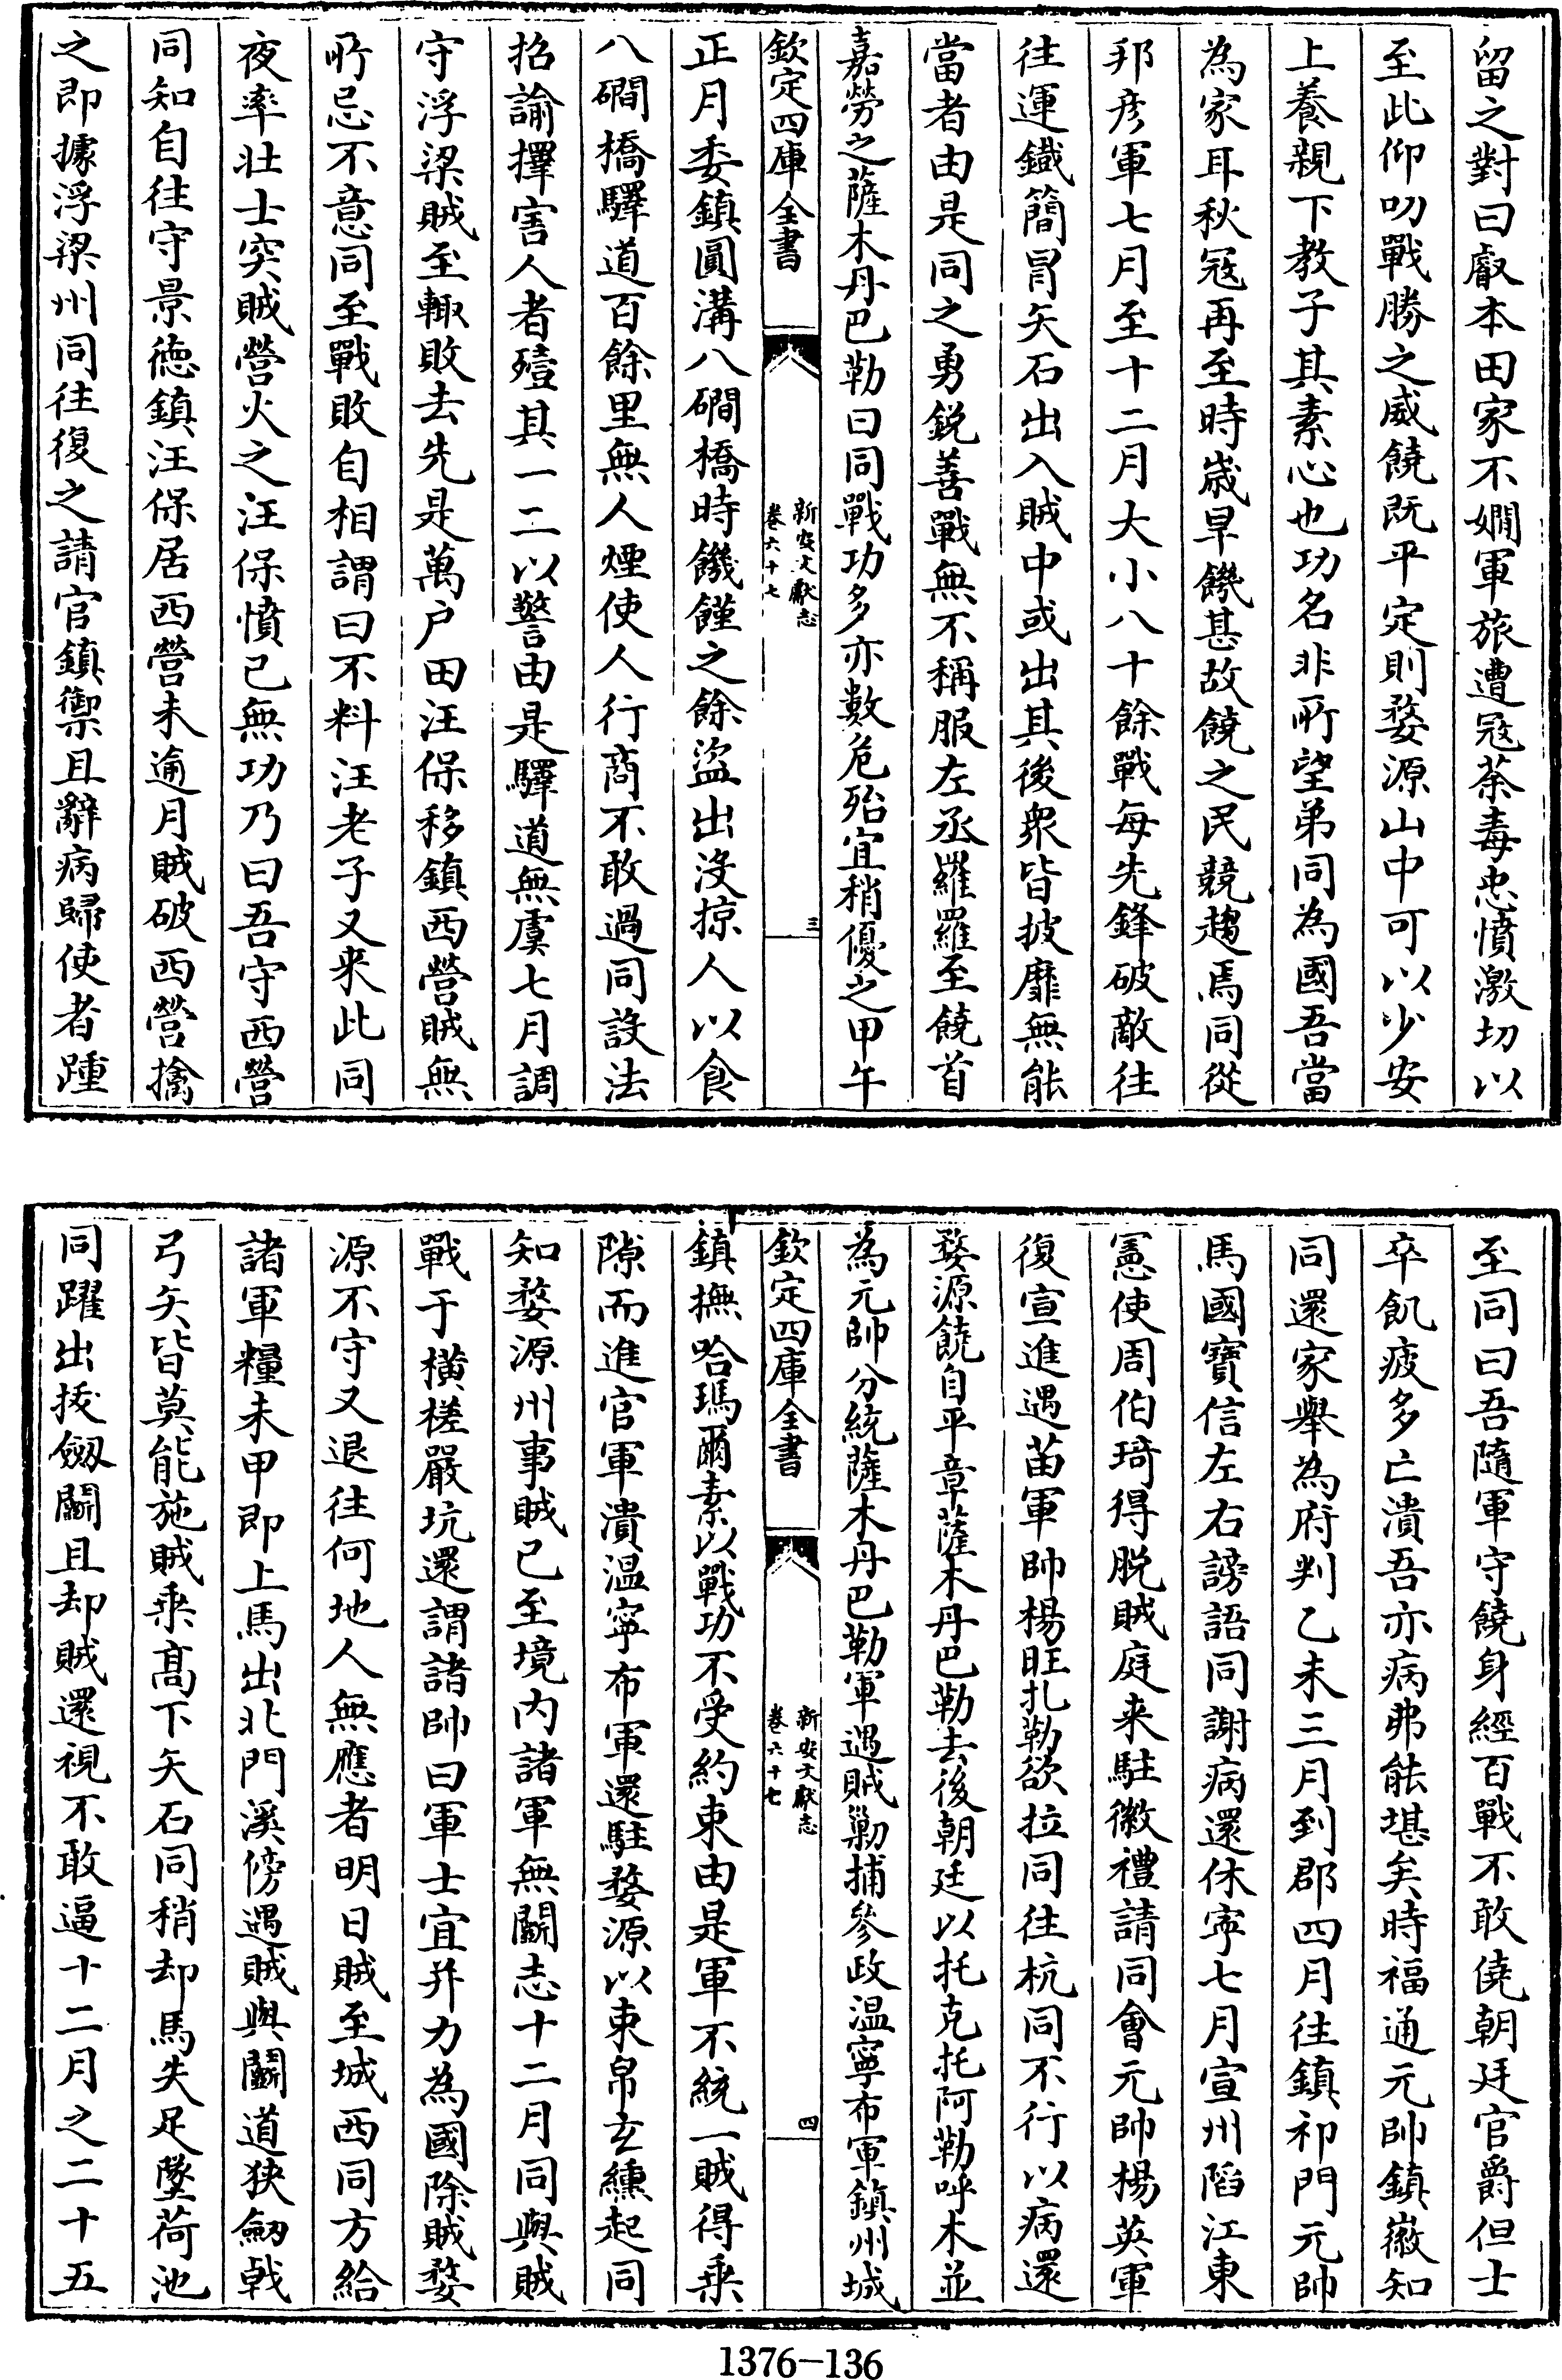 留之對曰叡本田家不嫺軍旅遭冦荼毒忠憤激切以
至此仰叨戰勝之威饒既平定則婺源山中可以少安
上養親下教子其素心也功名非所望弟同為國吾當
為家耳秋冦再至時歲旱饑甚故饒之民競趨焉同從
邦彦軍七月至十二月大小八十餘戰每先鋒破敵往
往運鐡簡冒矢石出入賊中或出其後衆皆披靡無能
當者由是同之勇鋭善戰無不稱服左丞羅羅至饒首
嘉勞之薩木丹巴勒曰同戰功多亦數危殆宜稍優之甲午
欽定四庫全書
新安文獻志
卷六十七
三
正月委鎮圓溝八磵橋時饑饉之餘盜出沒掠人以食
八磵橋驛道百餘里無人煙使人行商不敢過同設法
招諭擇害人者殪其一二以警由是驛道無虞七月調
守浮梁賊至輙敗去先是萬户田汪保移鎮西營賊無
所忌不意同至戰敗自相謂曰不料汪老子又来此同
夜率壯士突賊營火之汪保憤已無功乃曰吾守西營
同知自往守景徳鎮汪保居西營未逾月賊破西營擒
之即據浮梁州同往復之請官鎮禦且辭病歸使者踵
至同曰吾隨軍守饒身經百戰不敢僥朝廷官爵但士
卒飢疲多亡潰吾亦病弗能堪矣時福通元帥鎮徽知
同還家舉為府判乙未三月到郡四月往鎮祁門元帥
馬國寶信左右謗語同謝病還休寧七月宣州陷江東
憲使周伯琦得脱賊庭来駐徽禮請同會元帥楊英軍
復宣進遇苗軍帥楊旺扎勒欲拉同往杭同不行以病還
婺源饒自平章薩木丹巴勒去後朝廷以托克托阿勒呼木並
為元帥分統薩木丹巴勒軍遇賊勦捕參政温寧布軍鎮州城
欽定四庫全書
新安文獻志
卷六十七
四
鎮撫哈瑪爾素以戰功不受約束由是軍不統一賊得乗
隙而進官軍潰温寧布軍還駐婺源以束帛玄纁起同
知婺源州事賊已至境内諸軍無鬬志十二月同與賊
戰于横槎嚴坑還謂諸帥曰軍士宜并力為國除賊婺
源不守又退往何地人無應者明日賊至城西同方給
諸軍糧未甲即上馬出北門溪傍遇賊與鬬道狭劒戟
弓矢皆莫能施賊乗髙下矢石同稍却馬失足墜荷池
同躍出拔劔鬬且却賊還視不敢逼十二月之二十五
1376-136